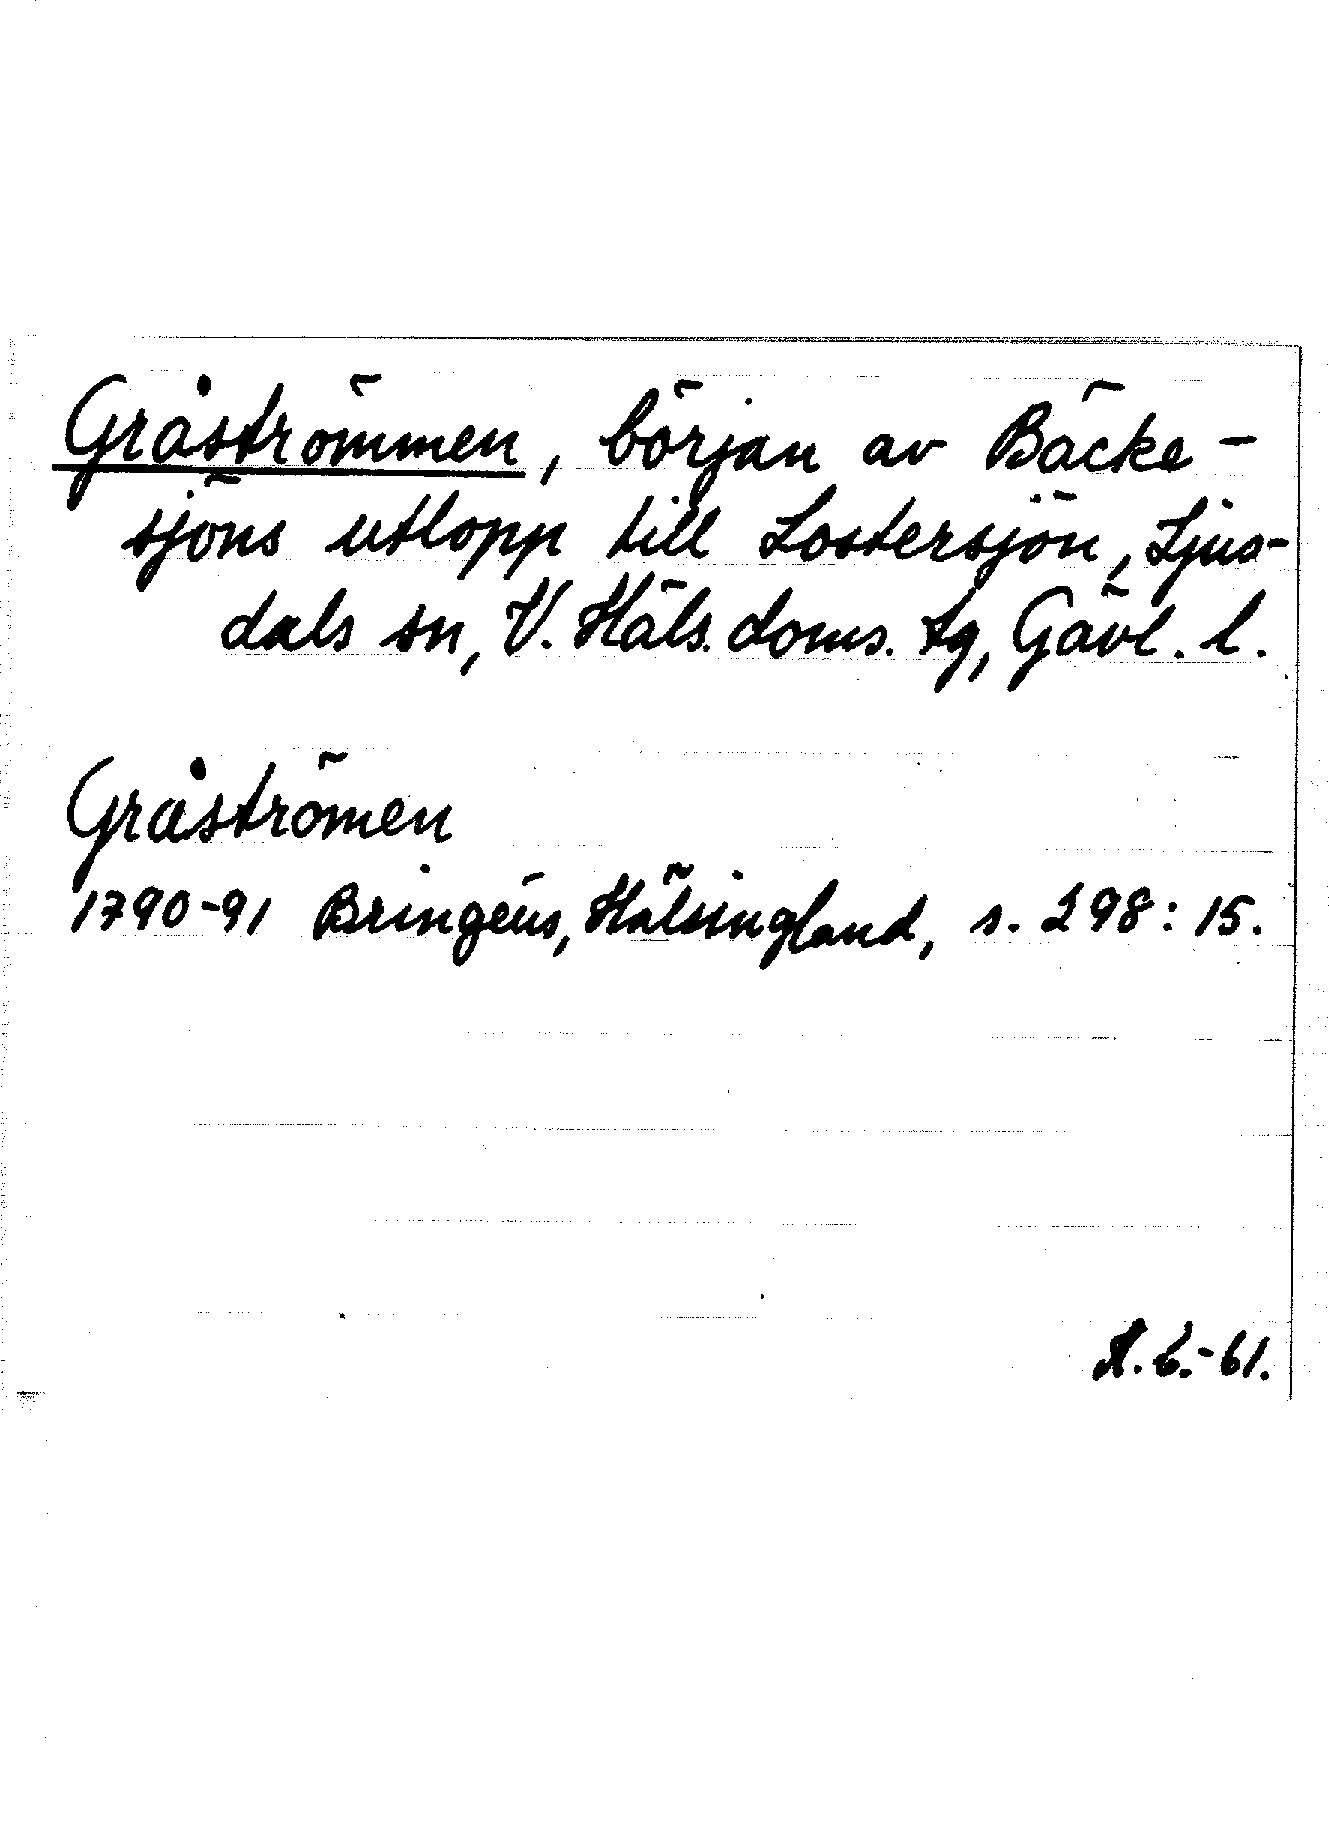 Gråströmmen, början av Bäcke-
sjöns utlopp till Lostersjön, Ljus-
dals sn, V. Häls. doms. tg, Gävl. l.
Gråströmen
1790-91 Bringéus, Hälsingland, s. 298:15.
A. L.-61.